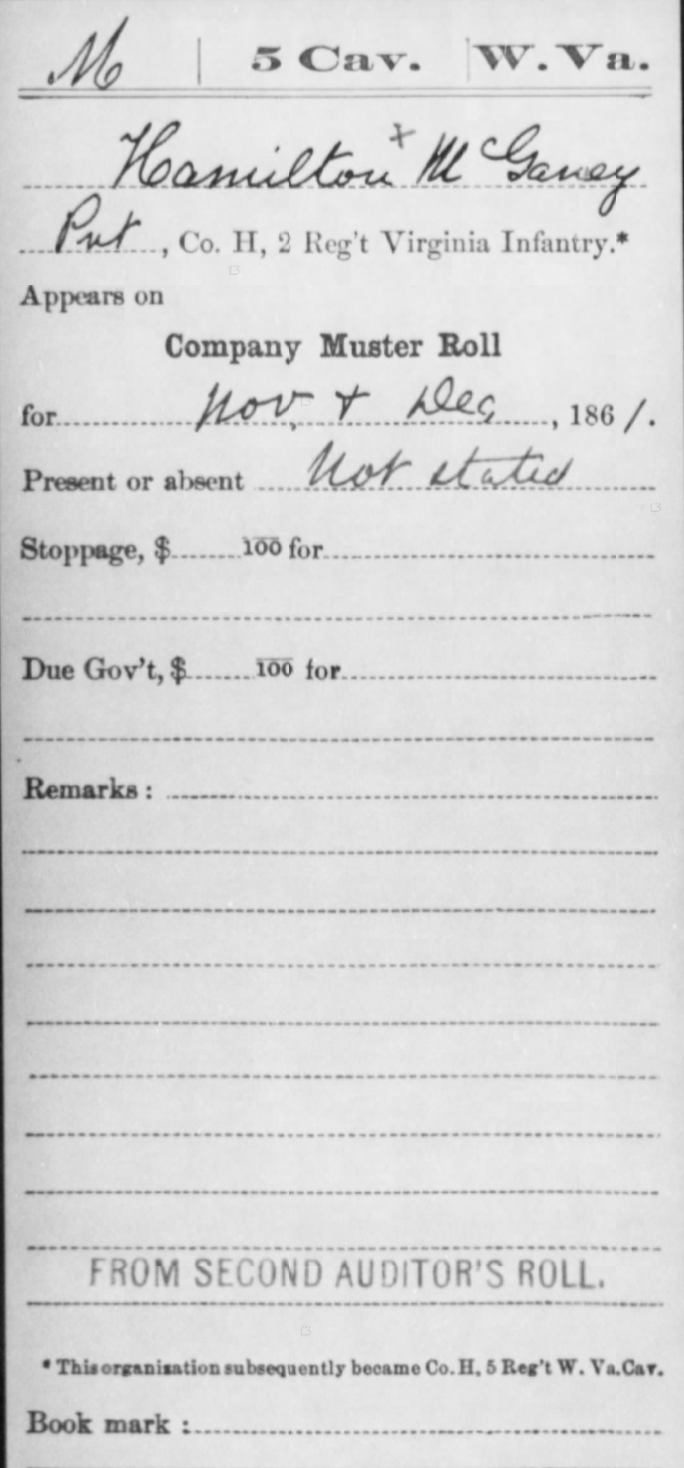 M | 5 Cav. | W. Va.
Hamilton x McGaney
Pvt, Co. H, 2 Reg't Virginia Infantry.*
Appears on
Company Muster Roll
for Nov. & Dec, 1861.
Present or absent Not stated
Stoppage, $ 100 for
Due Gov't, $ 100 for
Remarks:
FROM SECOND AUDITOR'S ROLL.
* This organisation subsequently became Co. H, 5 Reg't W. Va. Cav.
Book mark: